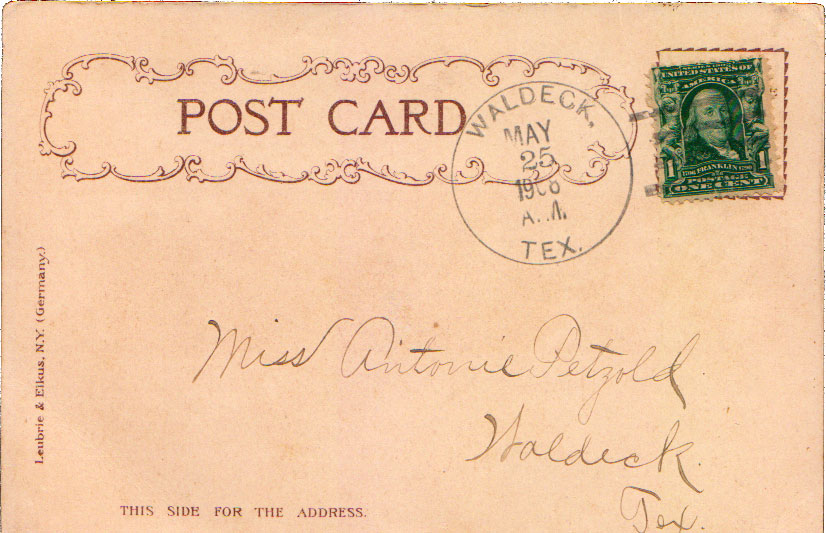 POST CARD
WALDECK,
MAY
25
1908
A.M.
TEX.
UNITED STATES OF
AMERICA
1 1
FRANKLIN
POSTAGE
ONE CENT
Miss Antonie Petzold
Waldeck
Tex.
Leubrie & Elkus, N.Y. (Germany.)
THIS SIDE FOR THE ADDRESS.